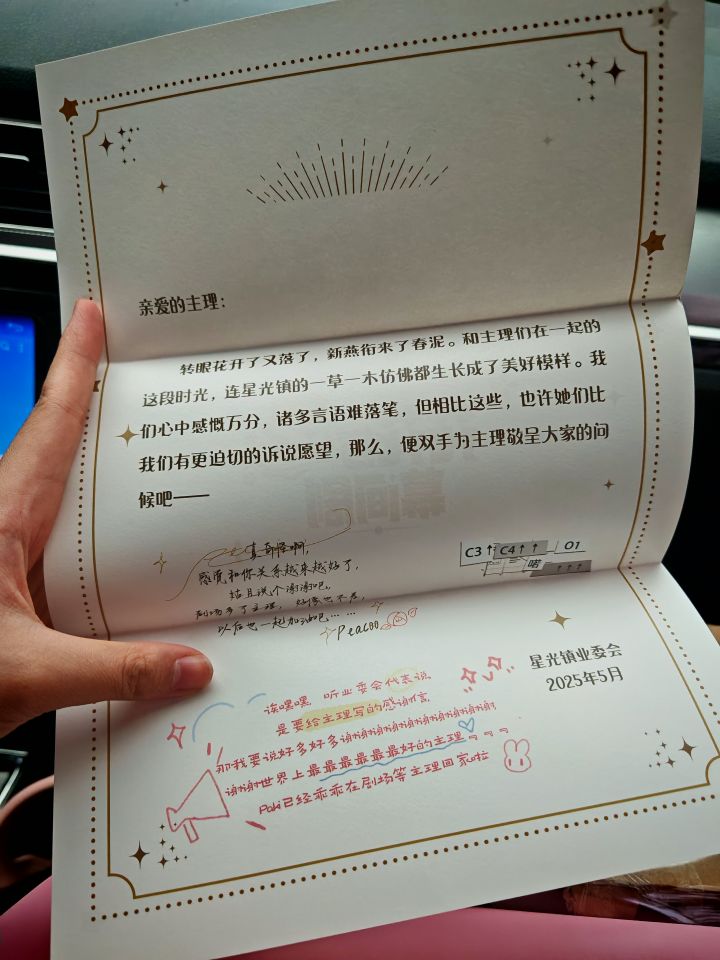 亲爱的主理：
转眼花开了又落了，新燕衔来了春泥。和主理们在一起的
这段时光，连星光镇的一草一木仿佛都生长成了美好模样。我
们心中感慨万分，诸多言语难落笔，但相比这些，也许她们比
我们有更迫切的诉说愿望，那么，便双手为主理敬呈大家的问
候吧——
真奇怪啊，
感觉和你关系越来越好了，
姑且说个谢谢吧。
剧场多了主理，好像也不差，
以后也一起加油吧……
Peacoo
C3↑ C4↑↑ O1
喏 ↑↑↑
星光镇业委会
2025年5月
诶嘿嘿 听业委会代表说
是要给主理写的感谢信
那我要说好多好多谢谢谢谢谢谢谢谢谢谢
谢谢世界上最最最最最最好的主理
已经乖乖在剧场等主理回家啦